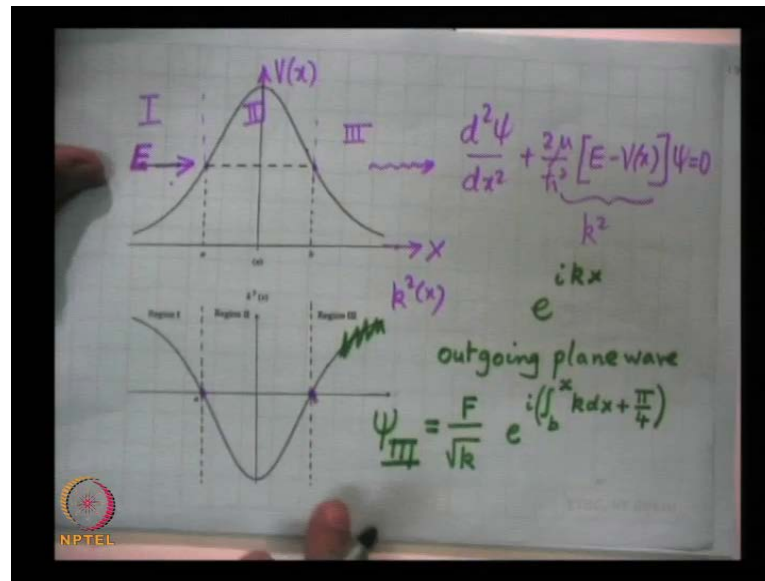 V(x)
I
II
III
E
d²ψ/dx² + 2μ/ħ² [E-V(x)]ψ=0
k²
x
a
b
(a)
k²(x)
k²(x)
Region I
Region II
Region III
e^{ikx}
outgoing plane wave
ψ_III = F/√k e^{i(∫_b^x kdx + π/4)}
NPTEL